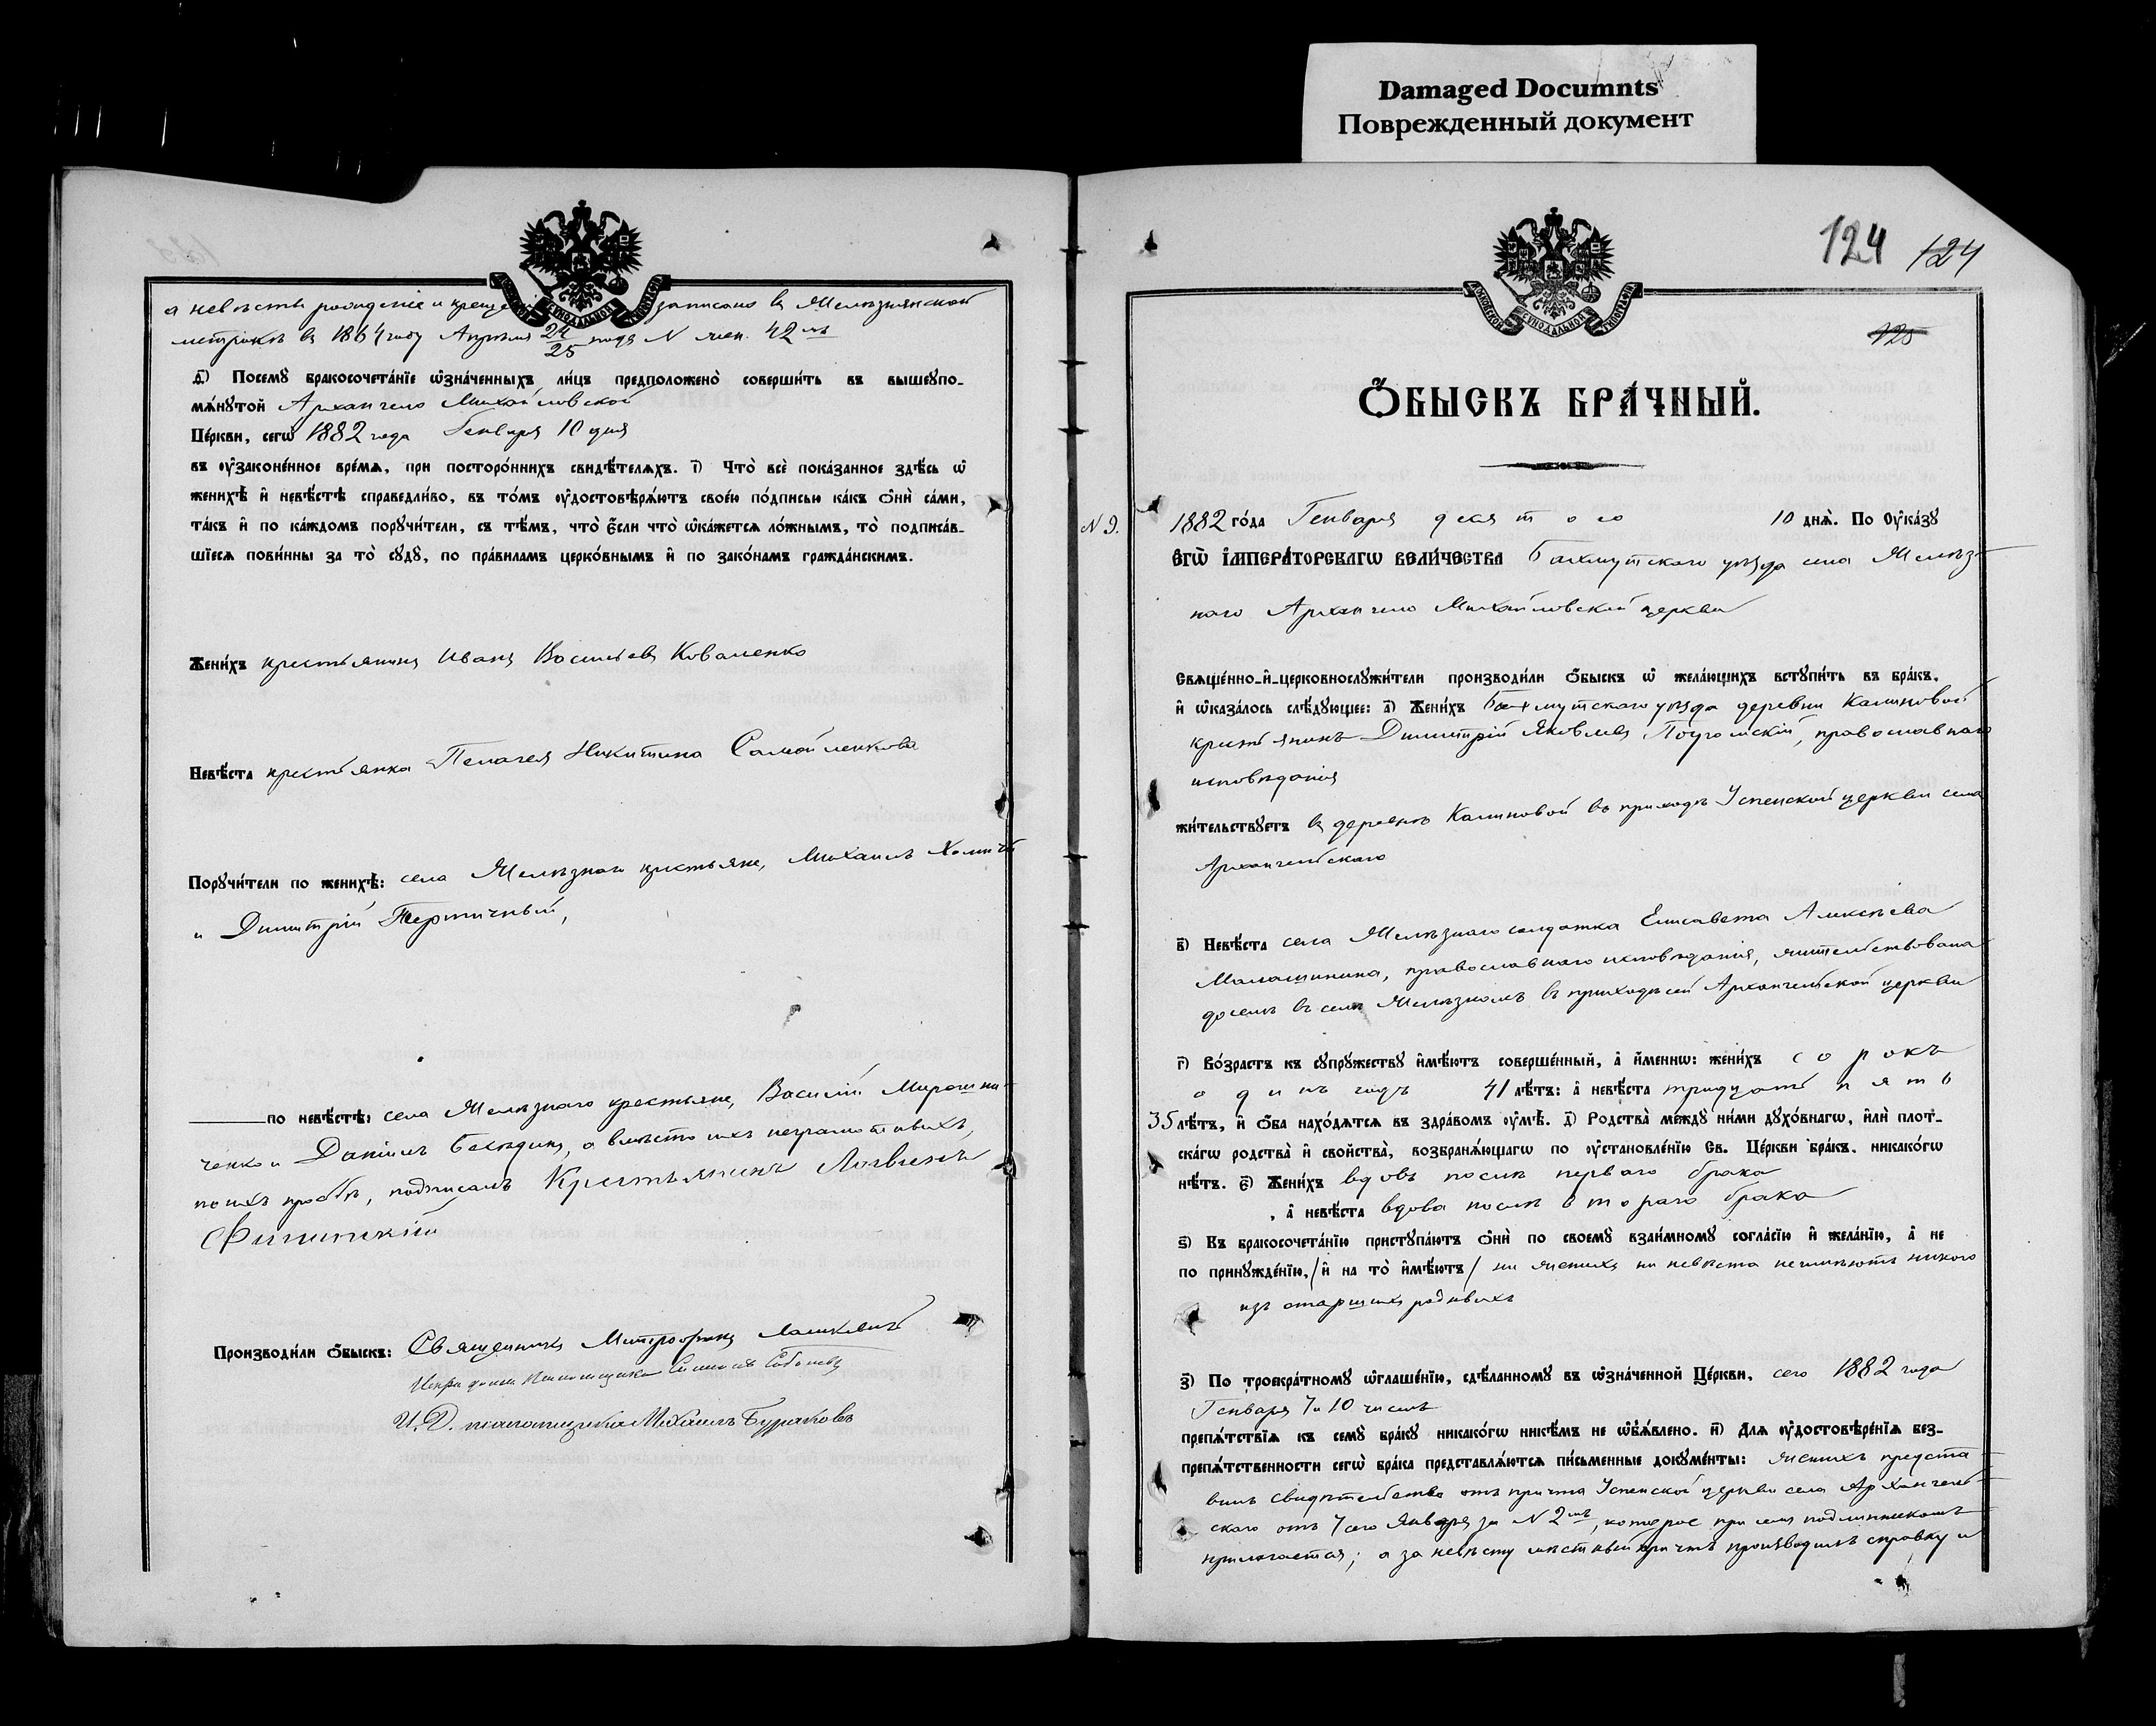 Damaged Documnts
Поврежденный документ
а невѣсты рожденіе и крещеніе записано въ Желѣзнянской
метрикѣ въ 1864 году Апрѣля 24/25 подъ N жен. 42мъ
д҃) Посемꙋ̀ бракосочета́нїе ѡ҆зна́ченныхъ ли́цъ предположено̀ соверши́ть въ вышеꙋпо-
мѧ́нꙋтой Архангело Михайловской
Це́ркви, сегѡ̀ 1882 года Генваря 10 дня
въ ᲂу҆законе́нное вре́мѧ, при посторо́ннихъ свидѣ́телѧхъ. і҃) Что̀ всѐ пока́занное здѣ́сь ѡ҆
женихѣ̀ и҆ невѣ́стѣ справедли́во, въ то́мъ ᲂу҆достовѣрѧ́ютъ свое́ю по́дписью ка́къ ѻ҆нѝ са́ми,
та́къ и҆ по ка́ждомъ порꙋчи́тели, съ тѣ́мъ, что̀ є҆́сли что̀ ѡ҆ка́жетсѧ ло́жнымъ, то̀ подписа́в-
шїесѧ пови́нны за то̀ сꙋдꙋ̀, по пра́виламъ церко́внымъ и҆ по зако́намъ гражда́нскимъ.
Жени́хъ крестьянинъ Иванъ Васильевъ Коваленко
Невѣ́ста крестьянка Пелагея Никитина Самойленкова
Порꙋчи́тели по женихѣ̀: села Желѣзнаго крестьяне, Михаилъ
и Димитрій
по невѣ́стѣ: села Желѣзнаго крестьяне, Василій Мирошни-
ченко и Даніилъ а вмѣсто ихъ неграмотныхъ,
по ихъ просьбѣ, подписалъ Крестьянинъ Логвинъ
Филипскій
Производи́ли ѻ҆́быскъ: Священникъ Митрофанъ
Испр. должн. Псаломщика
И. Д. псаломщика Михаилъ Бураковъ
124 124
125
Ѻ҆́БЫСКЪ БРА́ЧНЫЙ.
N 9.
1882 го́да Генваря десятого 10 днѧ̀. По Оу҆ка́зꙋ
ЕГѠ̀ ІМПЕРА́ТОРСКАГѠ ВЕЛИ́ЧЕСТВА Бахмутскаго уѣзда села Желѣз-
наго Архангело Михайловской церкви
Свѧще́нно-и҆-церковнослꙋжи́тели производи́ли ѻ҆́быскъ ѡ҆ жела́ющихъ встꙋпи́ть въ бра́къ,
и҆ ѡ҆каза́лось слѣ́дꙋющее: а҃) Жени́хъ Бахмутскаго уѣзда деревни Калиновой
крестьянинъ Димитрій Яковлевъ православнаго
исповѣданія
жи́тельствꙋетъ въ деревнѣ Калиновой въ приходѣ Успенской церкви села
Архангельскаго
в҃) Невѣ́ста села Желѣзнаго солдатка Елисавета Алексѣева
Малашинина, православнаго исповѣданія, жительствовала
доселѣ въ селѣ Желѣзномъ въ приходѣ сей Архангельской церкви
г҃) Во́зрастъ къ сꙋпрꙋ́жествꙋ и҆мѣ́ютъ соверше́нный, а҆̀ и҆́меннѡ: жени́хъ сорокъ
одинъ годъ 41 лѣ́тъ: а҆̀ невѣ́ста тридцать пять
35 лѣ́тъ, и҆ ѻ҆́ба нахо́дѧтсѧ въ здра́вомъ ᲂу҆мѣ̀. д҃) Родства̀ ме́ждꙋ ни́ми дꙋхо́внагѡ, и҆лѝ плот-
ска́гѡ родства̀ и҆ свойства̀, возбранѧ́ющагѡ по ᲂу҆становле́нїю Св. Це́ркви бра́къ, никако́гѡ
нѣ́тъ. є҃) Жени́хъ вдовъ послѣ перваго брака
, а҆̀ невѣ́ста вдова послѣ втораго брака
ѕ҃) Къ бракосочета́нїю пристꙋпа́ютъ ѻ҆нѝ по своемꙋ̀ взаи́мномꙋ согла́сїю и҆ жела́нїю, а҆̀ не
по принꙋжде́нїю, / и҆ на то̀ и҆мѣ́ютъ / ни женихъ ни невѣста неимѣютъ никого
изъ старшихъ родныхъ
з҃) По троекра́тномꙋ ѡ҆глаше́нїю, сдѣ́ланномꙋ въ ѡ҆зна́ченной Це́ркви, сего 1882 года
Генваря 7 и 10 числъ
препѧ́тствїѧ къ семꙋ̀ бра́кꙋ никако́гѡ никѣ́мъ не ѡ҆б̾ѧ́влено. и҃) Длѧ ᲂу҆достовѣре́нїѧ без-
препѧ́тственности сегѡ̀ бра́ка представлѧ́ютсѧ пи́сьменные докꙋме́нты: женихъ предста-
вилъ свидѣтельство отъ причта Успенской церкви села Архангель-
скаго отъ 7 сего Января за N 2мъ, которое при семъ подлинникомъ
прилагается; а за невѣсту мѣстный причтъ производилъ справку и